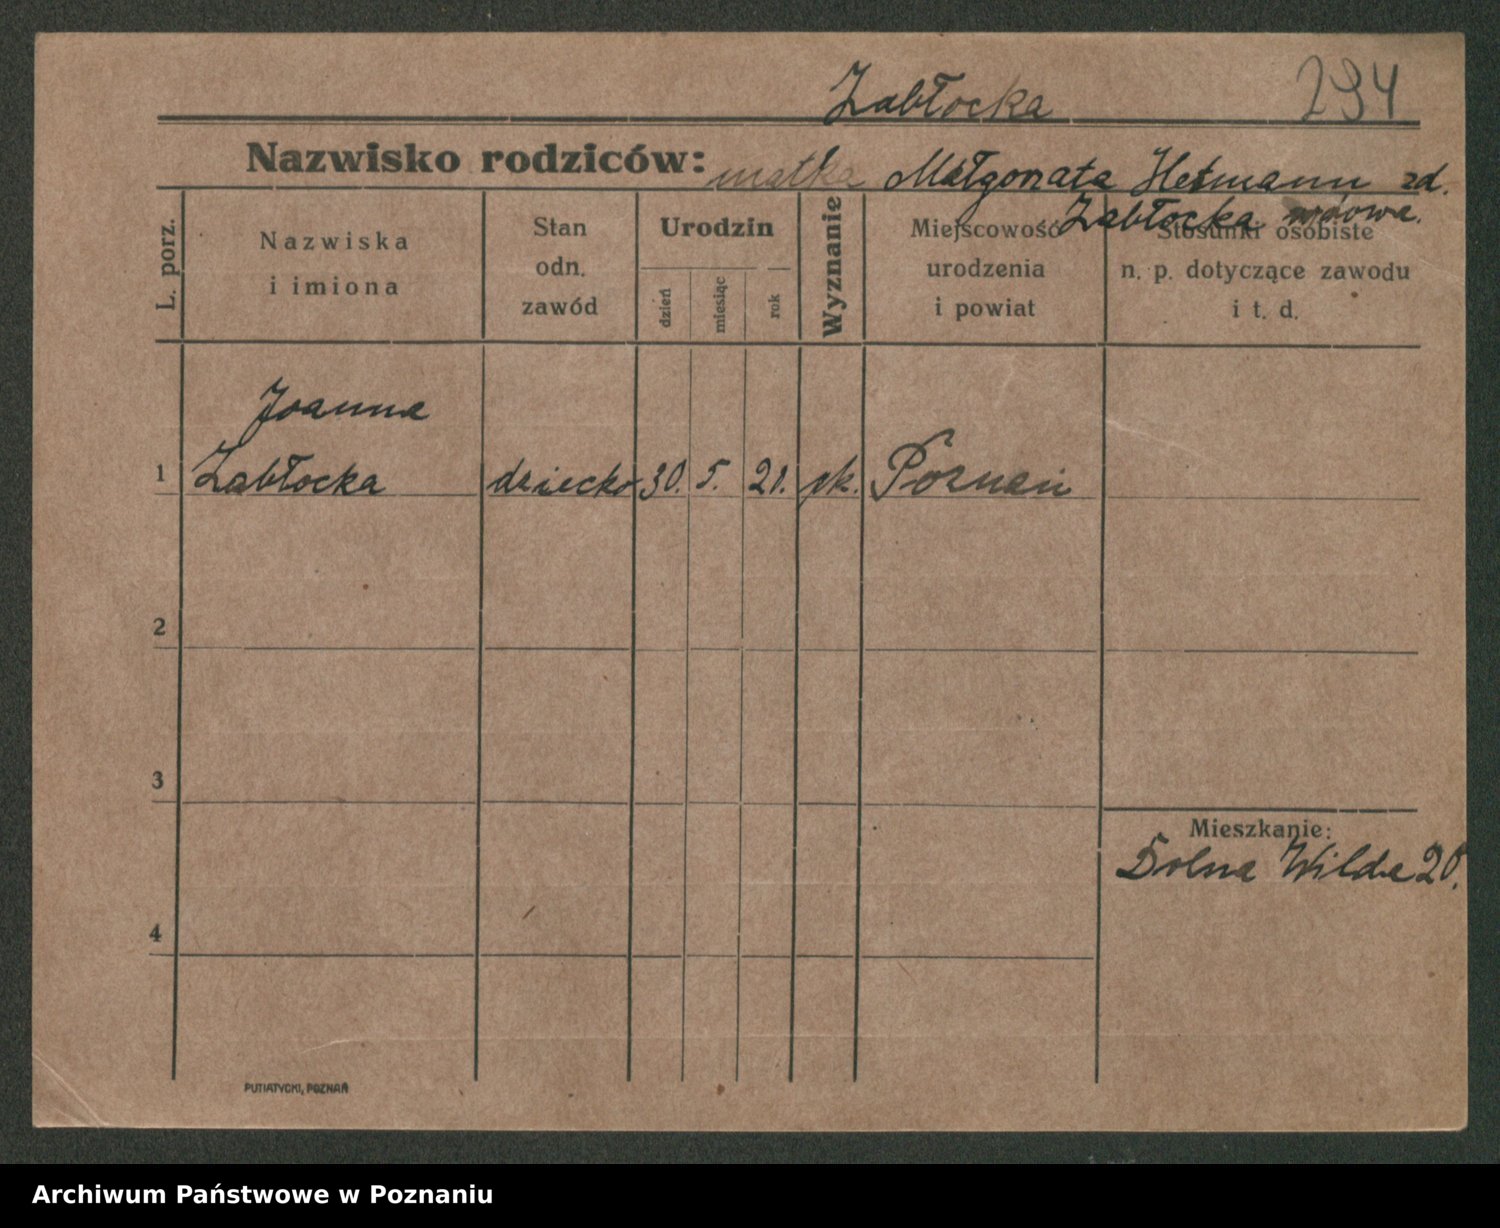 Zabłocka 294
Nazwisko rodziców: matka Małgorzata Hetmann zd.
Zabłocka wdowa.
L. porz.
Nazwiska
i imiona
Stan
odn.
zawód
Urodzin
dzień
miesiąc
rok
Wyznanie
Miejscowość
urodzenia
i powiat
Stosunki osobiste
n. p. dotyczące zawodu
i t. d.
Joanna
1 Zabłocka dziecko 30. 5. 21. rk. Poznań
2
3
Mieszkanie:
Dolna Wilda 20.
4
PUTIATYCKI, POZNAŃ
Archiwum Państwowe w Poznaniu